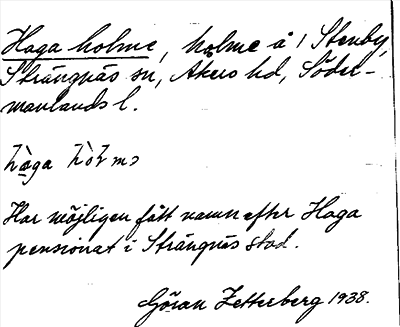 Haga holme, holme å 1 Stenby,
Strängnäs sn, Åkers hd, Söder-
manlands l.
hàga hòʟmɔ
Har möjligen fått namn efter Haga
pensionat i Strängnäs stad.
Göran Zetterberg 1938.